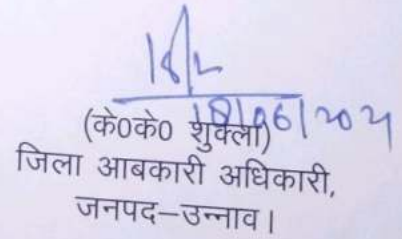 18/06/2021
(के0के0 शुक्ला)
जिला आबकारी अधिकारी,
जनपद-उन्नाव।